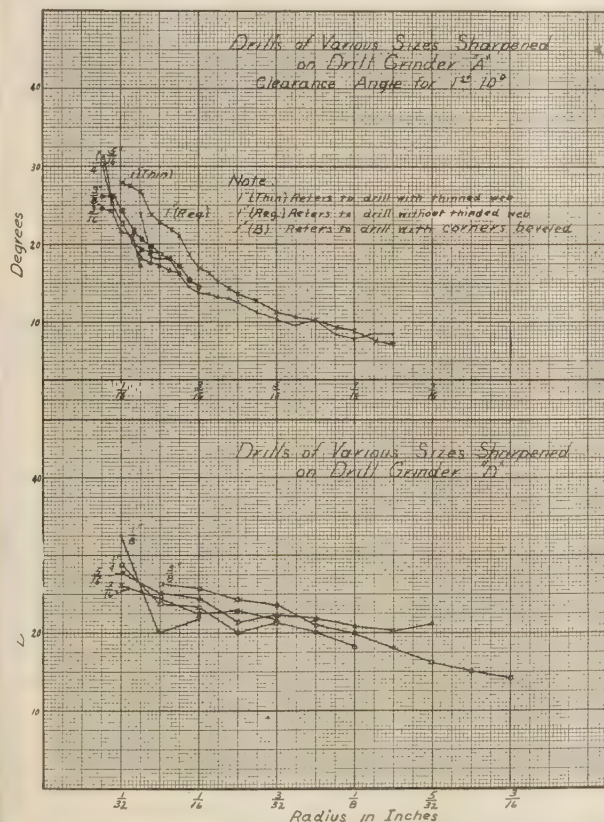 Drills of Various Sizes Sharpened
on Drill Grinder "A"
Clearance Angle for 1st 10°
40
30
20
10
Degrees
1"(Thin)
1"(Reg.)
Note:
1"(Thin) Refers to drill with thinned web
1"(Reg.) Refers to drill without thinned web
1"(B) Refers to drill with corners beveled
1/16
2/16
3/16
Drills of Various Sizes Sharpened
on Drill Grinder "D"
40
20
10
1/32
1/16
3/32
1/8
5/32
3/16
Radius in Inches